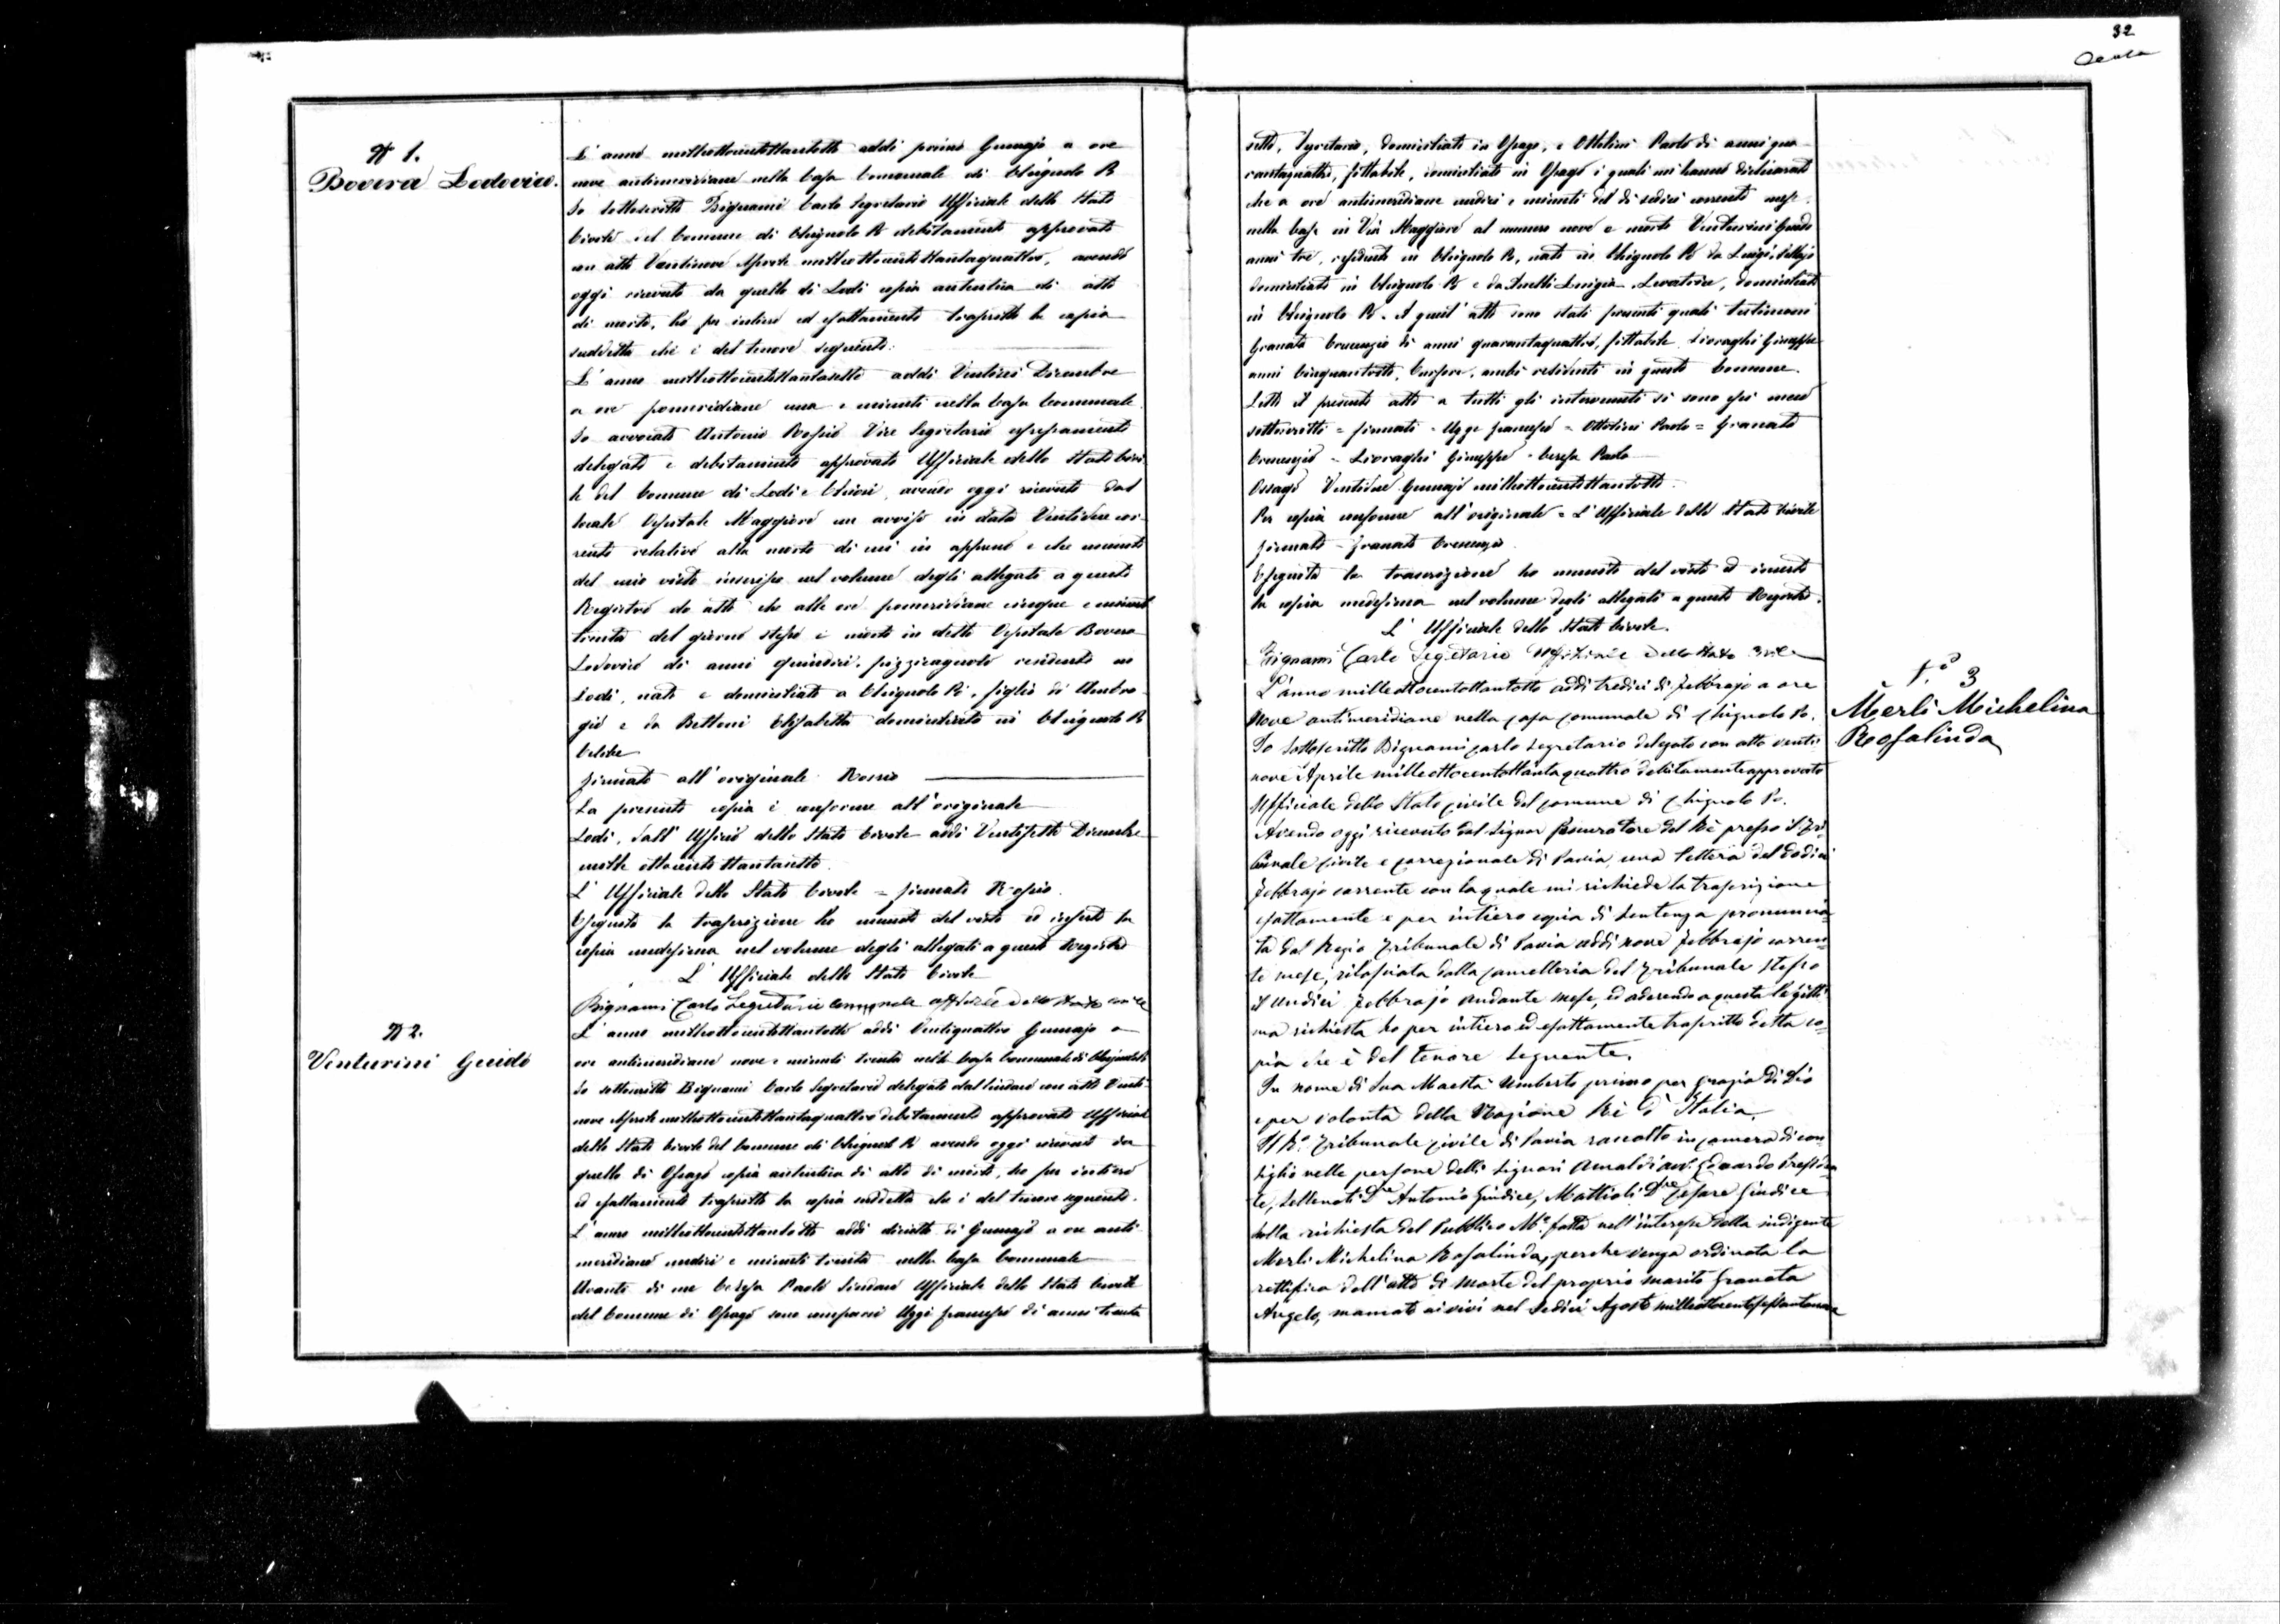 32
N 1.
Bovera Lodovico.
L'anno milleottocentottantotto addi primo Gennajo a ore
nove antimeridiane nella Casa Comunale di Chignolo Po
Io sottoscritto Bignami Carlo Segretario Ufficiale dello Stato
Civile del Comune di Chignolo Po debitamente approvato
con atto Ventinove Aprile milleottocentottantaquattro, avendo
oggi ricevuto da quello di Lodi copia autentica di atto
di morte, ho per intiero ed esattamente trascritto la copia
suddetta che è del tenore seguente:
L'anno milleottocentottantasette addi Ventisei Dicembre
a ore pomeridiane una e minuti nella Casa Comunale
Io avvocato Antonio Rossio Vice Segretario espressamente
delegato e debitamente approvato Ufficiale dello Stato Civi
le del Comune di Lodi e Chiosi, avendo oggi ricevuto dal
locale Ospitale Maggiore un avviso in data Ventidue cor
rente relativo alla morte di cui in appresso e che munito
del mio visto inserisco nel volume degli allegati a questo
Registro do atto che alle ore pomeridiane cinque e minuti
trenta del giorno stesso è morto in detto Ospitale Bovera
Lodovico di anni quindici, pizzicagnolo residente in
Lodi, nato e domiciliato a Chignolo Po, figlio di Ambro
gio e da Bettoni Elisabetta domiciliato in Chignolo Po
Celibe
firmato all'originale Rossio
La presente copia è conforme all'originale
Lodi, dall'Ufficio dello Stato Civile addi Ventisette Dicembre
mille ottocento ttantasette.
L'Ufficiale dello Stato Civile = firmato Rossio.
Eseguita la trascrizione ho munito del visto ed inserto la
copia medesima nel volume degli allegati a questo Registro
L'Ufficiale dello Stato Civile
Bignami Carlo Segretario Comunale Officiale dello Stato civile
N 2.
Venturini Guido
L'anno milleottocentottantotto addi Ventiquattro Gennajo a
ore antimeridiane nove e minuti trenta nella Casa Comunale di Chignolo Po
Io sottoscritto Bignami Carlo Segretario delegato dal Sindaco con atto Venti
nove Aprile milleottocentottantaquattro debitamente approvato Ufficiale
dello Stato Civile del Comune di Chignolo Po avendo oggi ricevuto da
quello di Ossago copia autentica di atto di morte, ho per intiero
ed esattamente trascritto la copia suddetta che è del tenore seguente.
L'anno milleottocentottantotto addi diciotto di Gennajo a ore anti
meridiane undici e minuti trenta nella Casa Comunale
Avanti di me Ceresa Paolo Sindaco Ufficiale dello Stato Civile
del Comune di Ossago sono comparsi Uggè Francesco di anni trenta
sette, Segretario, domiciliato in Ossago, e Ottolini Paolo di anni qua
rantaquattro, fittabile, domiciliato in Ossago i quali mi hanno dichiarato
che a ore antimeridiane undici e minuti del di sedici corrente mese,
nella Casa in Via Maggiore al numero nove è morto Venturini Guido
anni tre, residente in Chignolo Po, nato in Chignolo Po da Luigi,
domiciliato in Chignolo Po e da Luigia Levatrice, domiciliata
in Chignolo Po. A quest'atto sono stati presenti quali testimoni
Granata Crescenzio di anni quarantaquattro, fittabile, Livraghi Giuseppe
anni Cinquantotto, Cursore, ambi residenti in questo Comune.
Letto il presente atto a tutti gli intervenuti si sono essi meco
sottoscritti = firmati = Uggè Francesco = Ottolini Paolo = Granata
Crescenzio = Livraghi Giuseppe = Ceresa Paolo
Ossago Ventidue Gennajo milleottocentottantotto.
Per copia conforme all'originale = L'Ufficiale dello Stato Civile
firmato = Granata Crescenzio.
Eseguita la trascrizione ho munito del visto ed inserto
la copia medesima nel volume degli allegati a questo Registro.
L'Ufficiale dello Stato Civile.
Bignami Carlo Segretario Uffiziale dello Stato Civile
N.o 3
Merli Michelina
Rosalinda
L'anno milleottocentottantotto addi tredici di Febbrajo a ore
Nove antimeridiane nella casa comunale di Chignolo Po.
Io Sottoscritto Bignami Carlo Segretario delegato con atto venti
nove Aprile milleottocentottantaquattro debitamente approvato
Ufficiale dello Stato civile del comune di Chignolo Po.
Avendo oggi ricevuto dal Signor Procuratore del Rè presso il Tri
bunale civile e correzionale di Pavia una lettera del dodici
Febbrajo corrente con la quale mi richiede la trascrizione
esattamente e per intiero copia di Sentenza pronuncia
ta dal Regio Tribunale di Pavia addi nove Febbrajo corren
te mese, rilasciata dalla cancelleria del Tribunale stesso
il Undici Febbrajo andante mese, ed aderendo a questa legitti
ma richiesta ho per intiero ed esattamente trascritto detta co
pia che è del tenore seguente.
In nome di Sua Maestà Umberto primo per grazia di Dio
e per volontà della Nazione Rè d'Italia
Il R.o Tribunale civile di Pavia raccolto in camera di con
siglio nelle persone delli Signori Amaldi av.o Edoardo Presiden
te, Sellenati D.re Antonio Giudice, Mattioli D.re Cesare Giudice
Sulla richiesta del Pubblico M.o fatta nell'interesse della indigente
Merli Michelina Rosalinda, perchè venga ordinata la
rettifica dell'atto di Morte del proprio marito Granata
Angelo, mancato ai vivi nel Sedici Agosto milleottocentosessantanove